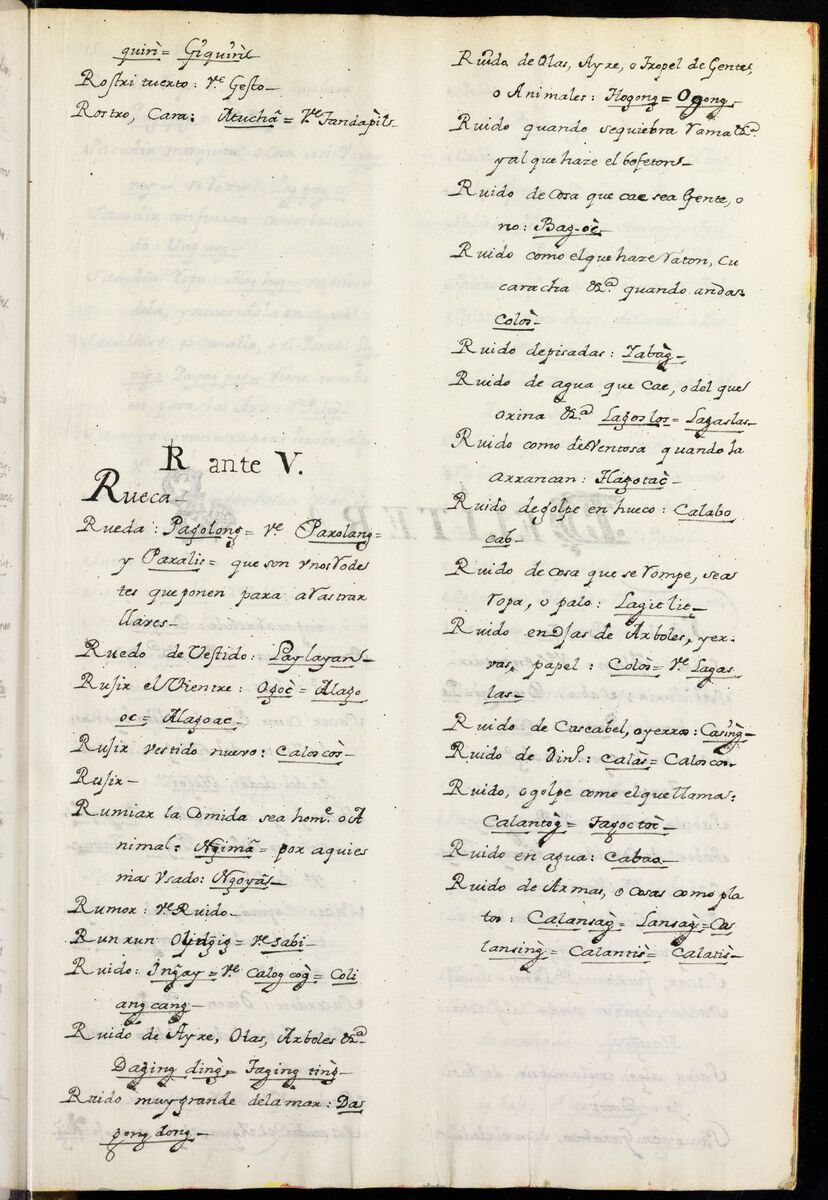 quiri = Giquiriè
Rostri tuerto: ve Gesto_
Rostro, Cara: Atuchâ = ve Tandapils_
R ante V.
Rueca_
Rueda: Pagolong = ve Parolang =
y Paralis = que son vnos rode
tes que ponen para arrastrar
llares_
Ruedo de Vestido: Laylayan_
Rusir el Vientre: Ogoc = Alago
oc = Alagoac_
Rusir vestido nuevo: Caloscos_
Rusir_
Rumiar la Comida sea home. o A
nimal: Ngima = por aquies
mas vsado: Ngoyas_
Rumor: ve Ruido_
Run run ve sabi_
Ruido: Ingay = ve Calogcog = Coli
angcang_
Ruido de Ayre, Olas, Arboles &a_
Daging ding = Taging ting_
Ruido muy grande dela mar: Da
gongdong_
Ruido de Olas, Ayre, o Tropel de Gentes,
o Animales: Hogong = Ogong_
Ruido quando sequiebra rama &a.
y al que haze el bofeton_
Ruido de Cosa que cae sea Gente, o
no: Bag-oc_
Ruido como el que haze raton, Cu
caracha &a. quando andas
Colos_
Ruido depisadas: Tabag_
Ruido de agua que Cae, o del que
orina &a. Lagoslos = Lagaslas_
Ruido como de Ventosa quando la
arrancan: Hagotac_
Ruido degolpe en hueco: Calabo
cab_
Ruido de Cosa que se rompe, sea
ropa, o palo: Lagitlit_
Ruido en ojas de Arboles, yer-
vas, papel: Colos = ve Lagas
las_
Ruido de Cascabel, o yerros: Casing_
Ruido de Dino.: calas = Caloscos_
Ruido, o golpe como el que llama:
Calantog = Tagoctoc_
Ruido en agua: Cabao_
Ruido de Armas, o Cosas como pla
tos: Calansag = Lansag = Ca
lansing = Calantis = Calatis_